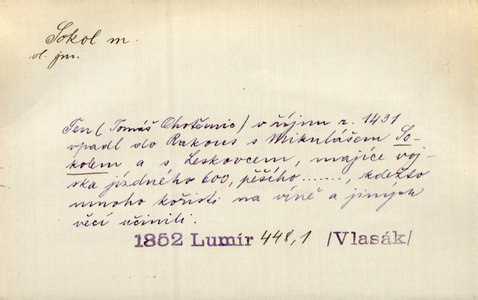 Sokol m.
vl. jm.
Ten (Tomáš Chotěmic) v říjnu r. 1431
vpadl do Rakous s Mikulášem So-
kolem a s Leskovcem, majíce voj-
ska jízdného 600, pěšího ......., kdežto
mnoho kořisti na víně a jiných
věcí učinili.
1852 Lumír 448,1 /Vlasák/